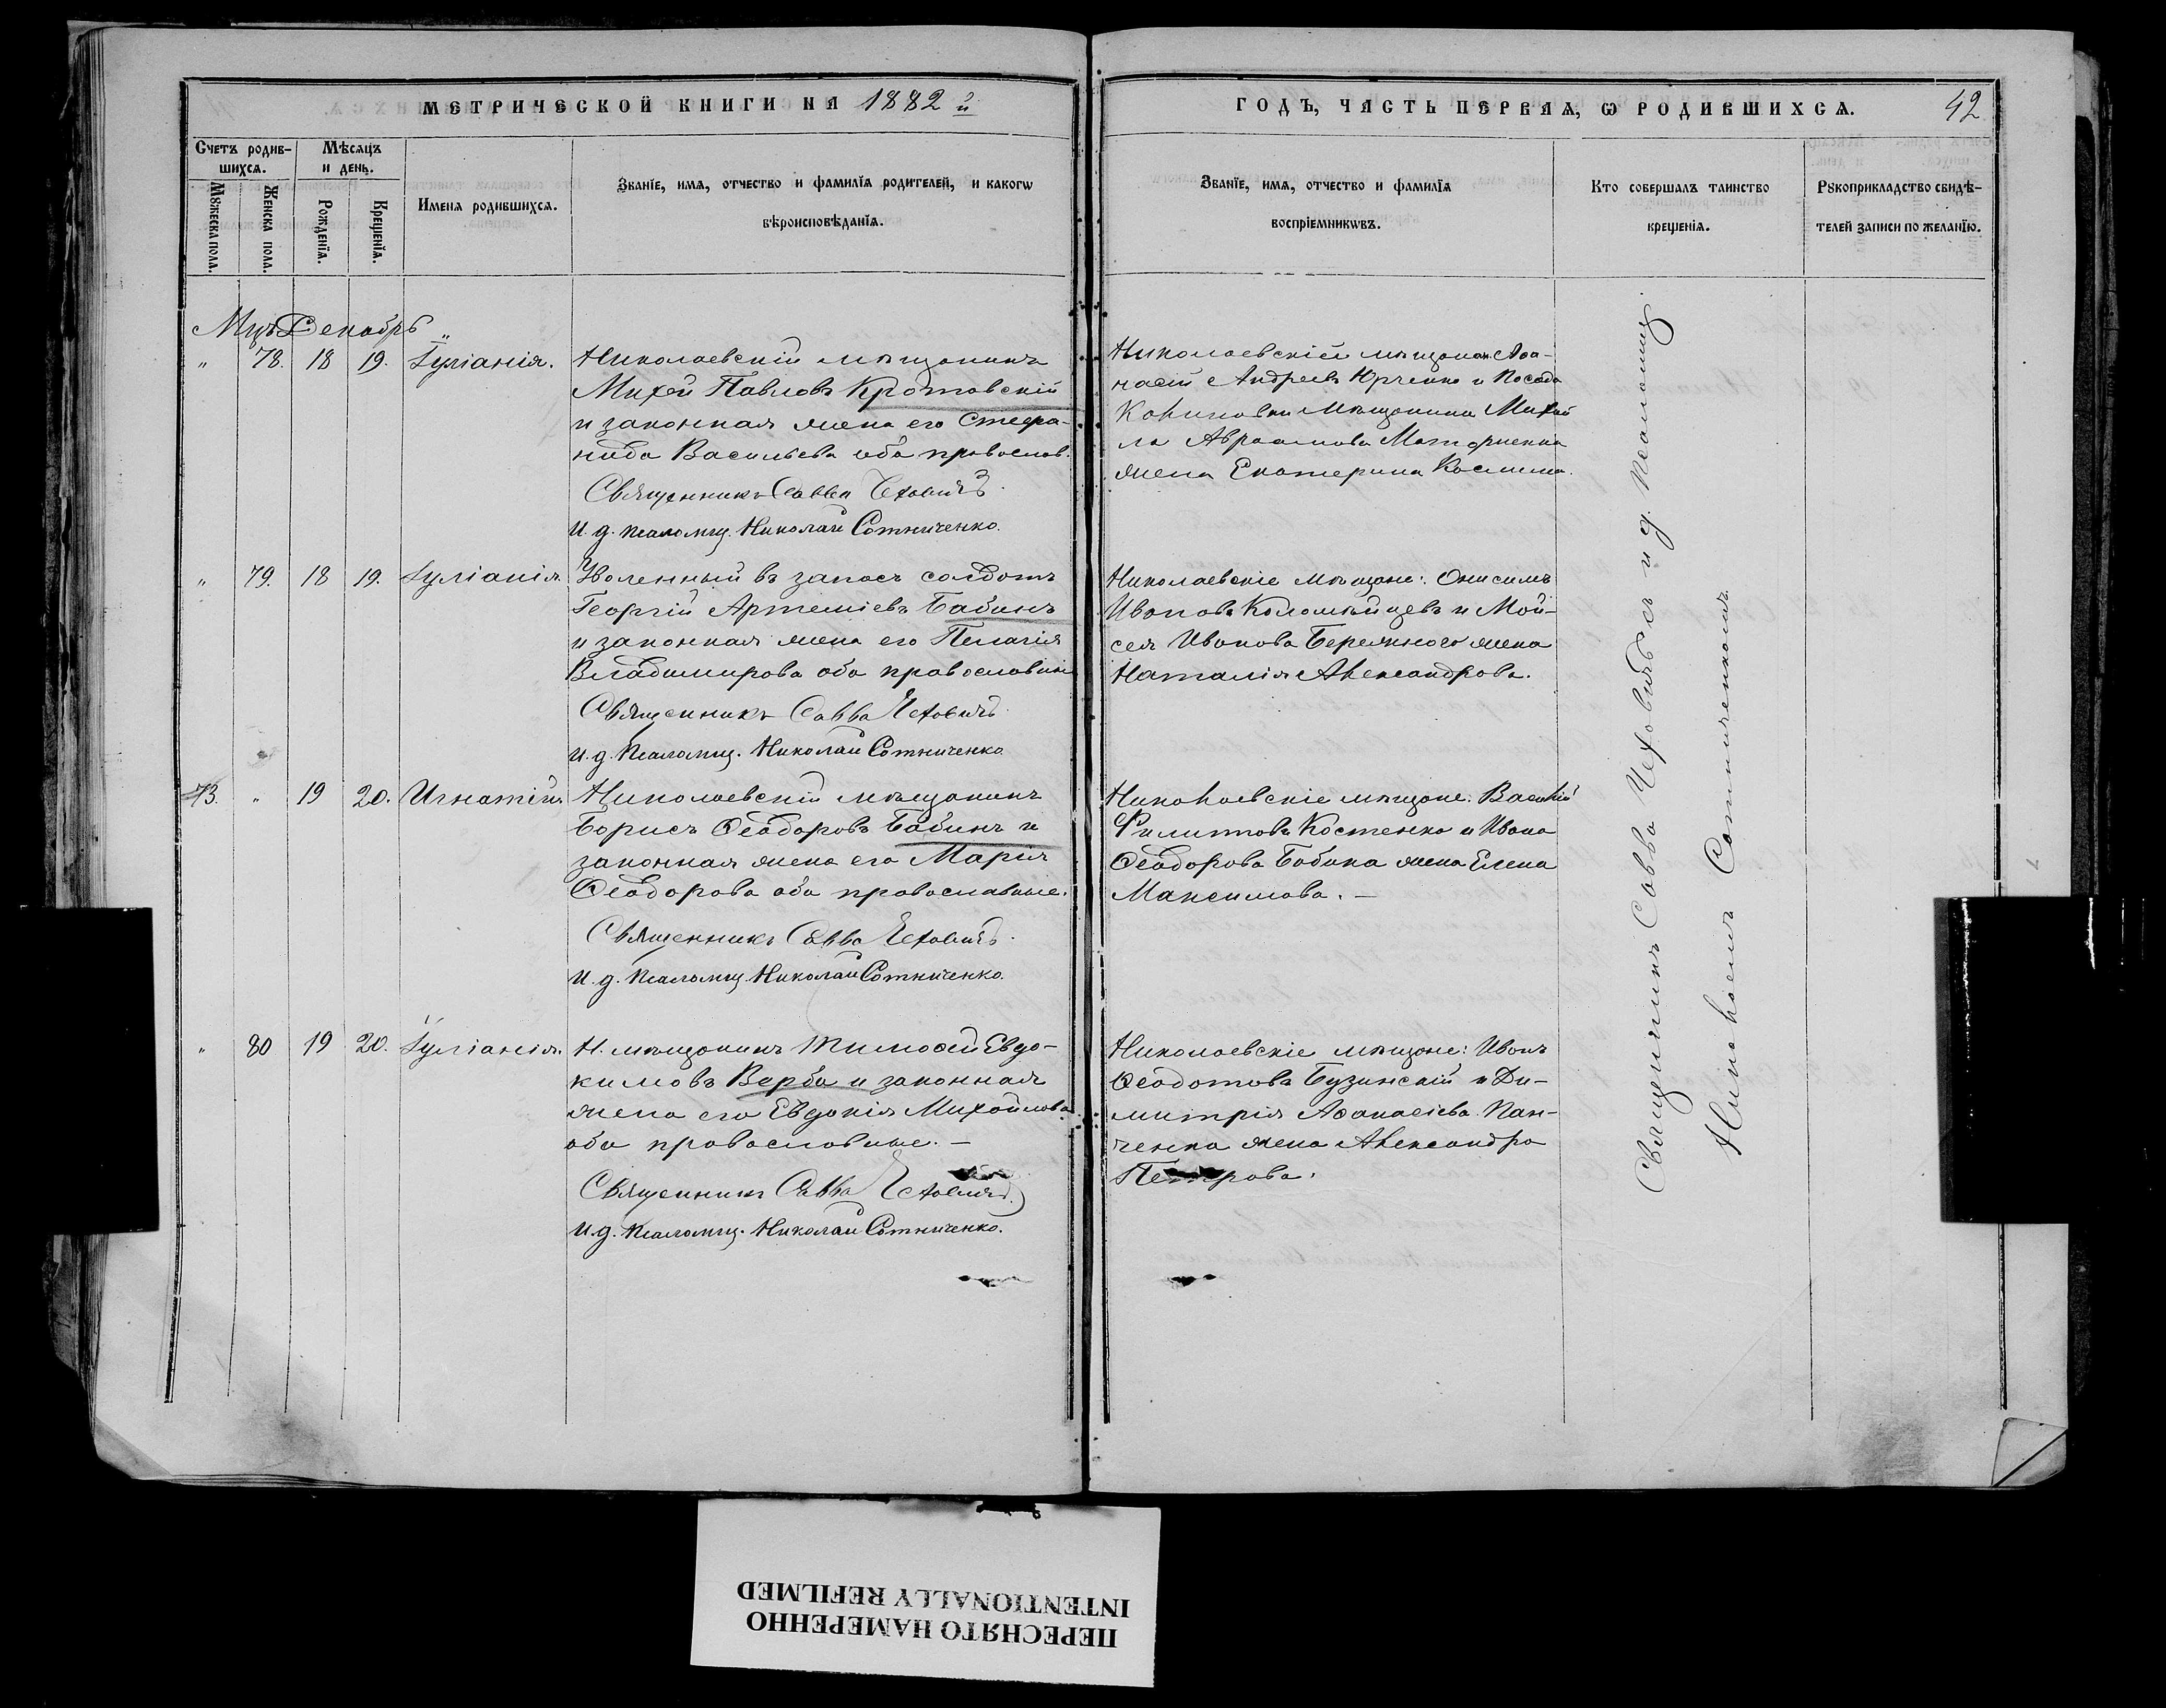 МЕТРИЧЕСКОЙ КНИГИ НА 1882 й
ГОДЪ, ЧАСТЬ ПЕРВАЯ, Ѡ РОДИВШИХСѦ.
42
Счетъ родив-
шихсѧ.
Мѣсѧцъ
и день.
Мꙋжеска пола.
Женска пола.
Рожденїѧ.
Крещенїѧ.
Имена родившихсѧ.
Званїе, имѧ, отчество и фамилїѧ родителей, и какогѡ
вѣроисповѣданїѧ.
Званїе, имѧ, отчество и фамилїѧ
воспрїемникѡвъ.
Кто совершалъ таинство
крещенїѧ.
Рꙋкоприкладство свидѣ-
телей записи по желанїю.
Мцъ Декабрь
" 78. 18 19. Іуліанія.
Николаевскій мѣщанинъ
Михей Павловъ Кротовскій
и законная жена его Стефа-
нида Васильева оба православ.
Священникъ Савва Чеховичъ
И. д. псаломщ. Николай Сотниченко.
Николаевскій мѣщан. Аѳа-
насій Андреевъ Юрченко и Посада
Калиновки мѣщанина Михаи
ла Авраамова
жена Екатерина Космина.
" 79. 18 19. Іуліанія
Уволенный въ запасъ солдатъ
Георгій Артеміевъ Бабинъ
и законная жена его Пелагія
Владимирова оба православные
Священникъ Савва Чеховичъ
И. д. псаломщ. Николай Сотниченко
Николаевскіе мѣщане: Онисимъ
Ивановъ Коломѣйцевъ и Мой-
сея Иванова Бережного жена
Наталія Александрова.
73. " 19 20. Игнатій
Николаевскій мѣщанинъ
Борисъ Ѳеодоровъ Бабинъ и
законная жена его Марія
Ѳеодорова оба православные.
Священникъ Савва Чеховичъ
И. д. псаломщ. Николай Сотниченко.
Николаевскіе мѣщане: Василій
Филипповъ Костенко и Ивана
Ѳеодорова Бабина жена Елена
Максимова. —
" 80 19 20. Іуліанія.
Н. мѣщанинъ Тимоѳей Евдо-
кимовъ Верба и законная
жена его Евдокія Михайлова
оба православные. —
Священникъ Савва Чеховичъ
И. д. псаломщ. Николай Сотниченко.
Николаевскіе мѣщане: Иванъ
Ѳеодотовъ Бузинскій и Ди-
митрія Аѳанасіева Пан-
ченка жена Александра
Петрова.
Священникъ Савва Чеховичъ съ и д. псаломщ.
Николаемъ Сотниченкомъ.
ПЕРЕСНЯТО НАМЕРЕННО
INTENTIONALLY REFILMED